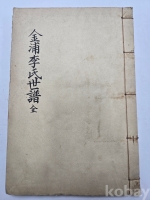 金浦李氏世譜 全
kobay